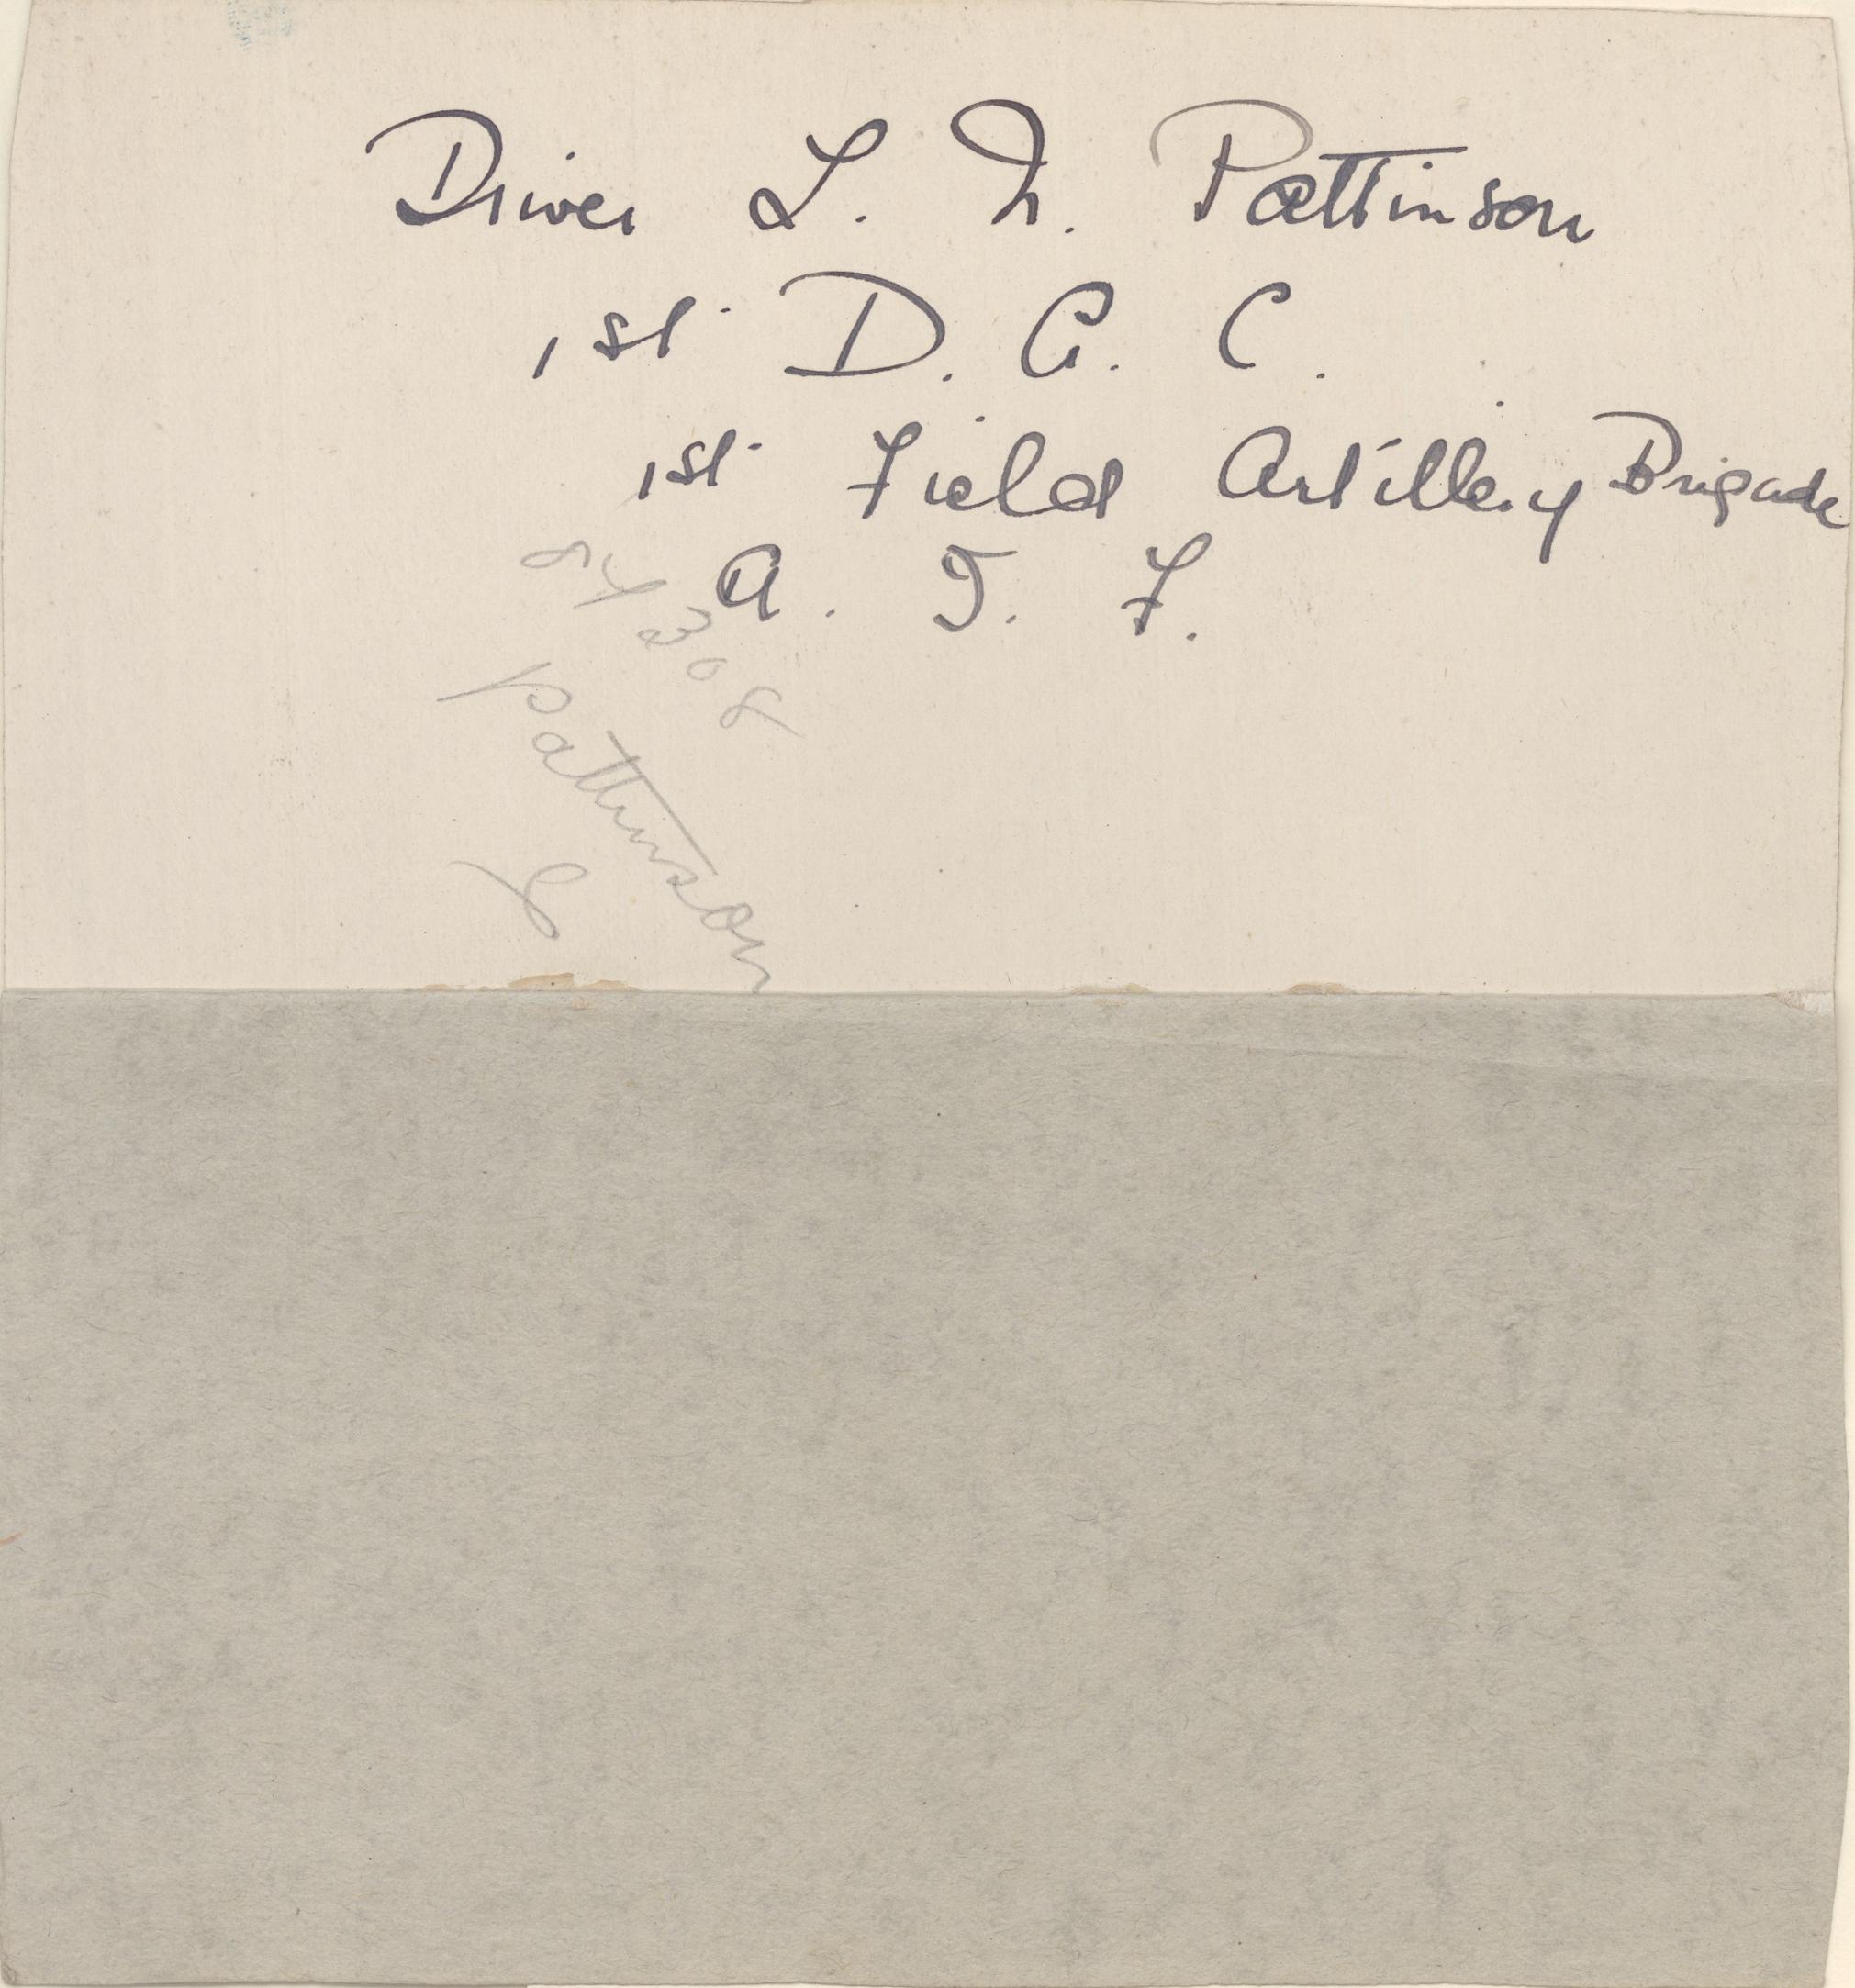 Driver L. N. Pattinson
1st D. A. C.
1st Field Artillery Brigade
A. I. F.
Pattinson
L